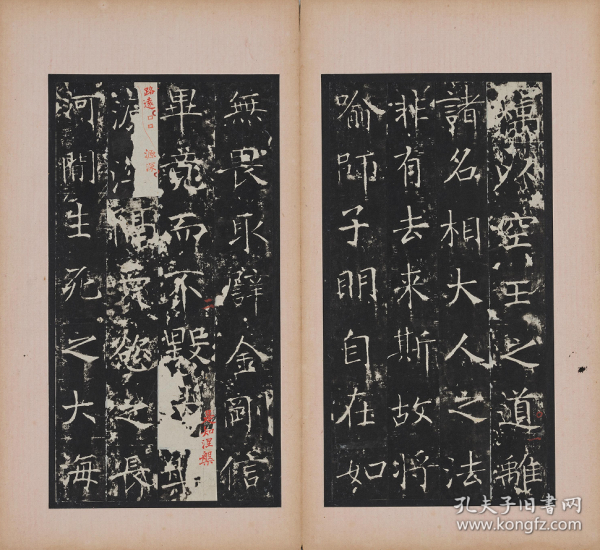 以空王之道離
諸名相大人之法
非有去來斯故將
喻師子明自在如
無畏取譬金剛信
畢竟而不毀
是知涅槃
路遠口口源深
愛慾之長
河間生死之大海
孔夫子旧书网
www.kongfz.com